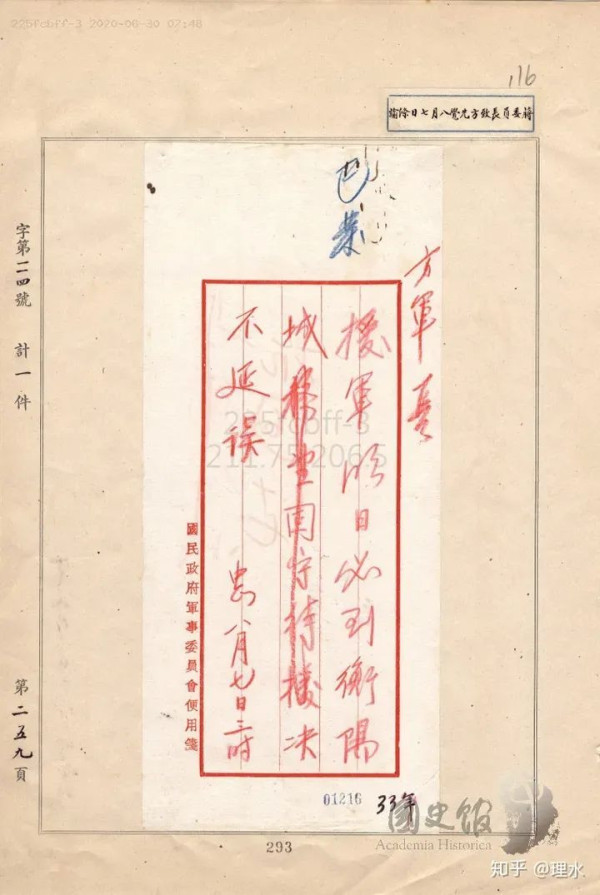 225fcbff-3 2020-06-30 07:48
116
蔣委員長致方先覺八月七日除諭
方軍長
援軍明日必到衡陽
城務望固守待援決
不延誤
忠八月七日三時
國民政府軍事委員會便用箋
已叢
字第二四號 計一件
第二五九頁
225fcbff-3
211.75.206.5
01216
33年
國史館
Academia Historica
293
知乎 @理水